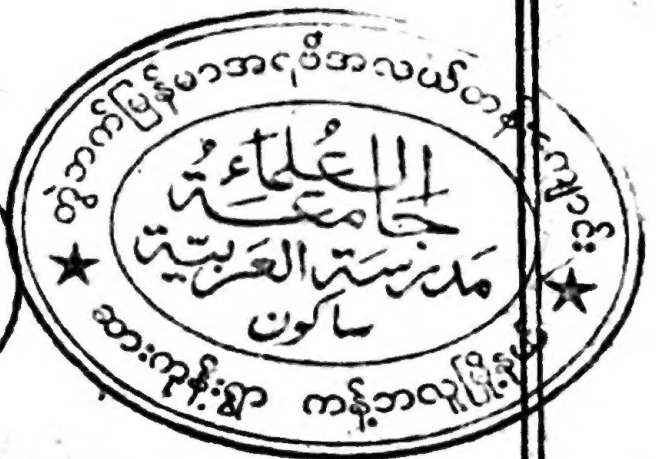 တွဲဘက်မြန်မာအရဗီအလယ်တန်းကျောင်း
العُلماءُ
جَامعَةُ
مَدرسَة العَربيّة
ساكون
ဆားကုန်းရွာ ကန့်ဘလူမြို့နယ်